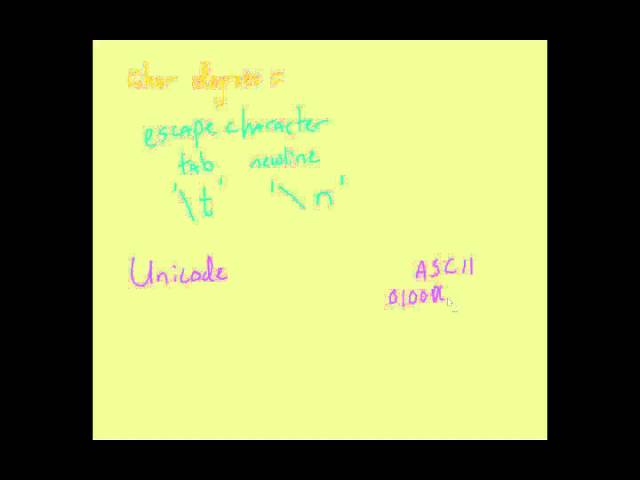 char degree =
escape character
tab newline
'\t' '\n'
Unicode ASCII